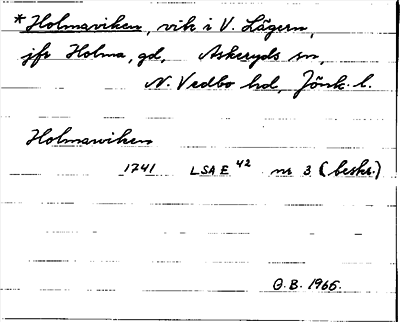 * Holmaviken, vik i V. Lägern,
jfr Holma, gd, Askeryds sn,
N. Vedbo hd, Jönk. l.
Holmawiken
1741 LSA E 42 nr 3 (beskr.)
G.B. 1966.